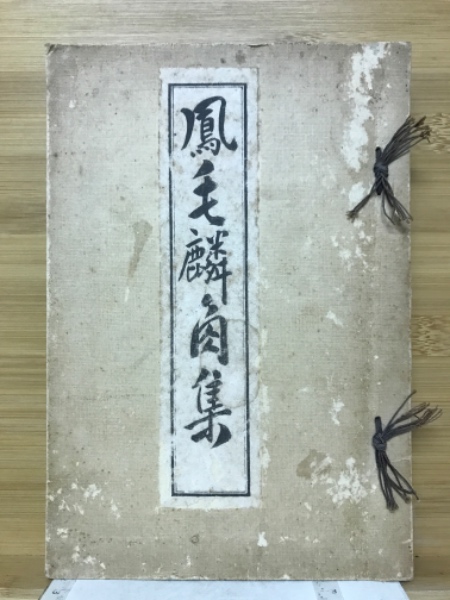 鳳毛麟角集